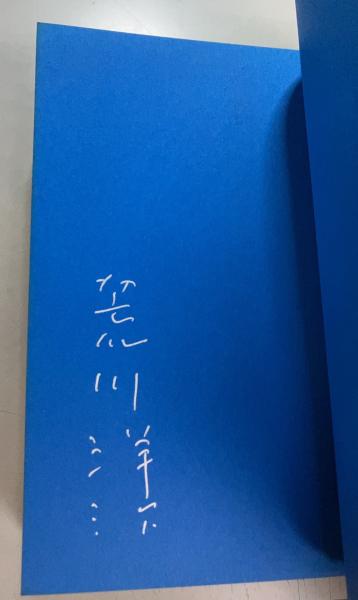 荒川洋治